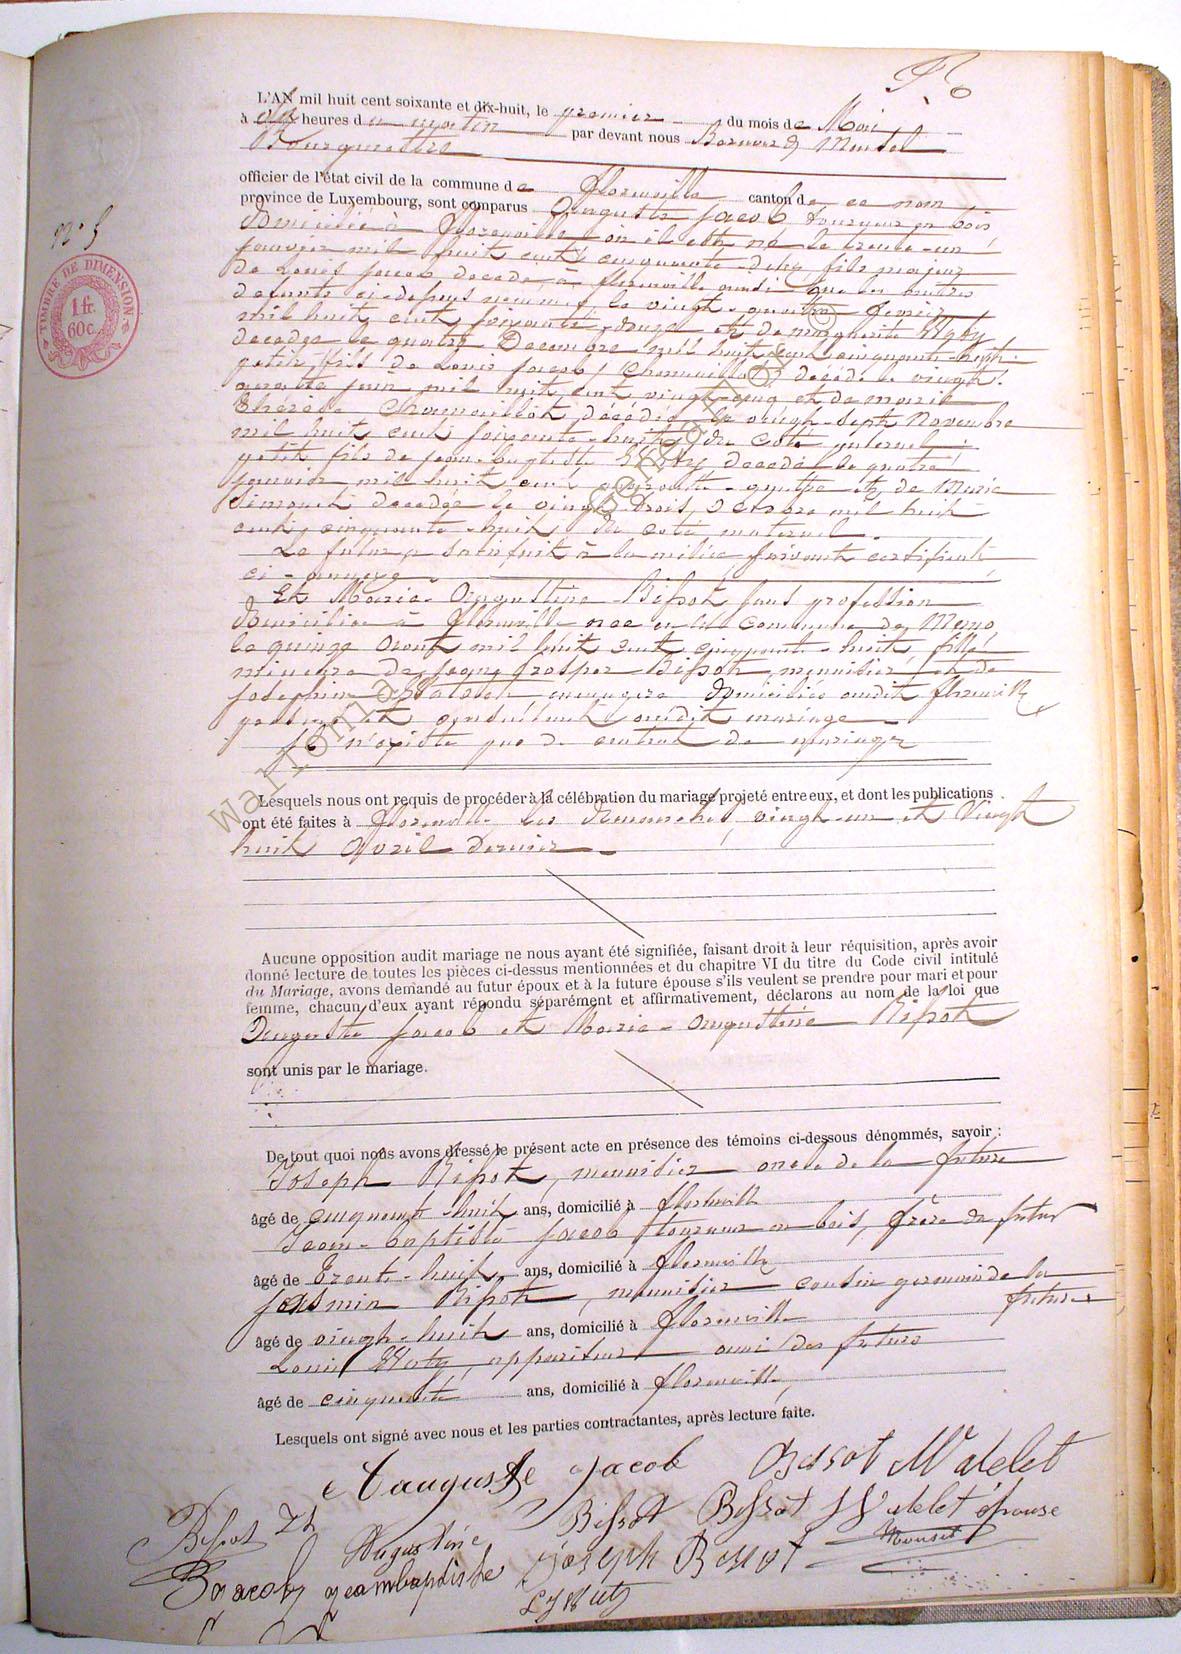 L'AN mil huit cent soixante et dix-huit, le premier du mois de Mai
à dix heures du matin par devant nous Bernard Mensel
Bourgmestre
officier de l'état civil de la commune de florenville canton de ce nom
province de Luxembourg, sont comparus Auguste Jacob, tourneur en bois
N° 5
TIMBRE DE DIMENSION
1 fr.
60 c.
Domicilié à florenville où il est né le trente-un
janvier mil huit cent cinquante-deux fils majeur
de Louis Jacob décédé à florenville ainsi que les autres
défunts ci-dessus nommés, le vingt-quatre
mil huit cent soixante-douze et de marguerite
décédée le quatre Décembre mil huit cent cinquante-sept.
petit-fils de Louis Jacob décédé le vingt
quatre juin mil huit cent vingt-cinq et de marie
thérèse décédée le vingt-sept Novembre
mil huit cent soixante-huit du côté paternel.
petit fils de jean-baptiste décédé le quatre
janvier mil huit cent quarante-quatre et de Marie
décédée le vingt-trois octobre mil huit
cent cinquante-huit du côté maternel.
Le futur a satisfait à la milice suivant certificat
ci-annexé
Et Marie-Augustine Bissot sans profession
Domiciliée à florenville née en la commune de
le quinze août mil huit cent cinquante-huit, fille
mineure de prosper Bissot menuisier et de
joséphine Watelet ménagère domiciliés audit florenville
présents et consentant audit mariage
Il n'existe pas de contrat de mariage
Lesquels nous ont requis de procéder à la célébration du mariage projeté entre eux, et dont les publications
ont été faites à florenville les dimanches, vingt-un et Vingt
huit Avril dernier
Aucune opposition audit mariage ne nous ayant été signifiée, faisant droit à leur réquisition, après avoir
donné lecture de toutes les pièces ci-dessus mentionnées et du chapitre VI du titre du Code civil intitulé
du Mariage, avons demandé au futur époux et à la future épouse s'ils veulent se prendre pour mari et pour
femme, chacun d'eux ayant répondu séparément et affirmativement, déclarons au nom de la loi que
Auguste Jacob et Marie-Augustine Bissot
sont unis par le mariage.
De tout quoi nous avons dressé le présent acte en présence des témoins ci-dessous dénommés, savoir :
Joseph Bissot, menuisier oncle de la future
âgé de cinquante-huit ans, domicilié à florenville
Jean-baptiste Jacob tourneur en bois, frère du futur
âgé de trente-huit ans, domicilié à florenville
Jasmin Bissot, menuisier cousin germain de la
future
âgé de vingt-huit ans, domicilié à florenville
Louis appariteur ami des futurs
âgé de cinquante ans, domicilié à florenville
Lesquels ont signé avec nous et les parties contractantes, après lecture faite.
auguste jacob Bissot Watelet
Bissot Augustine Bissot Bissot J Watelet épouse
jacob jeanbaptiste joseph Bissot